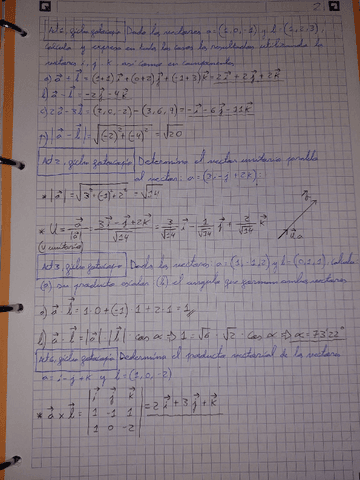 2
Act 1, Dado los vectores a = (1,0,-1) y b = (1,2,3),
calcula y expresa en todo los casos los resultados utilizando la
vectores i, j, k así como sus componentes
a) a + b = (1+1)i + (0+2)j + (-1+3)k = 2i + 2j + 2k
b) a - b = -2j - 4k
c) 2a - 3b = (2, 0, -2) - (3, 6, 9) = -i - 6j - 11k
d) |a - b| = √(-2)² + (-4)² = √20
Act 2, Determina el vector unitario paralelo
al vector: a = (3i - j + 2k);
* |a| = √3² + (-1)² + 2² = √14
* U = a/|a| = 3i - j + 2k/√14 = 3/√14 i - 1/√14 j + 2/√14 k
(unitario)
Act 3, Dado los vectores a = (1,-1,2) y b = (0,1,1), calcula
(a) su producto escalar (b) el ángulo que forman ambos vectores
a) a b = 1·0 + (-1) 1 + 2·1 = 1
b) a · b = |a| · |b| cos α ⇒ 1 = √6 · √2 · cos α ⇒ α = 73'22°
Determina el producto vectorial de los vectores
a = i - j + k y b = (1,0,-2)
* a x b = | i j k | = 2 i + 3 j + k
1 -1 1
1 0 -2